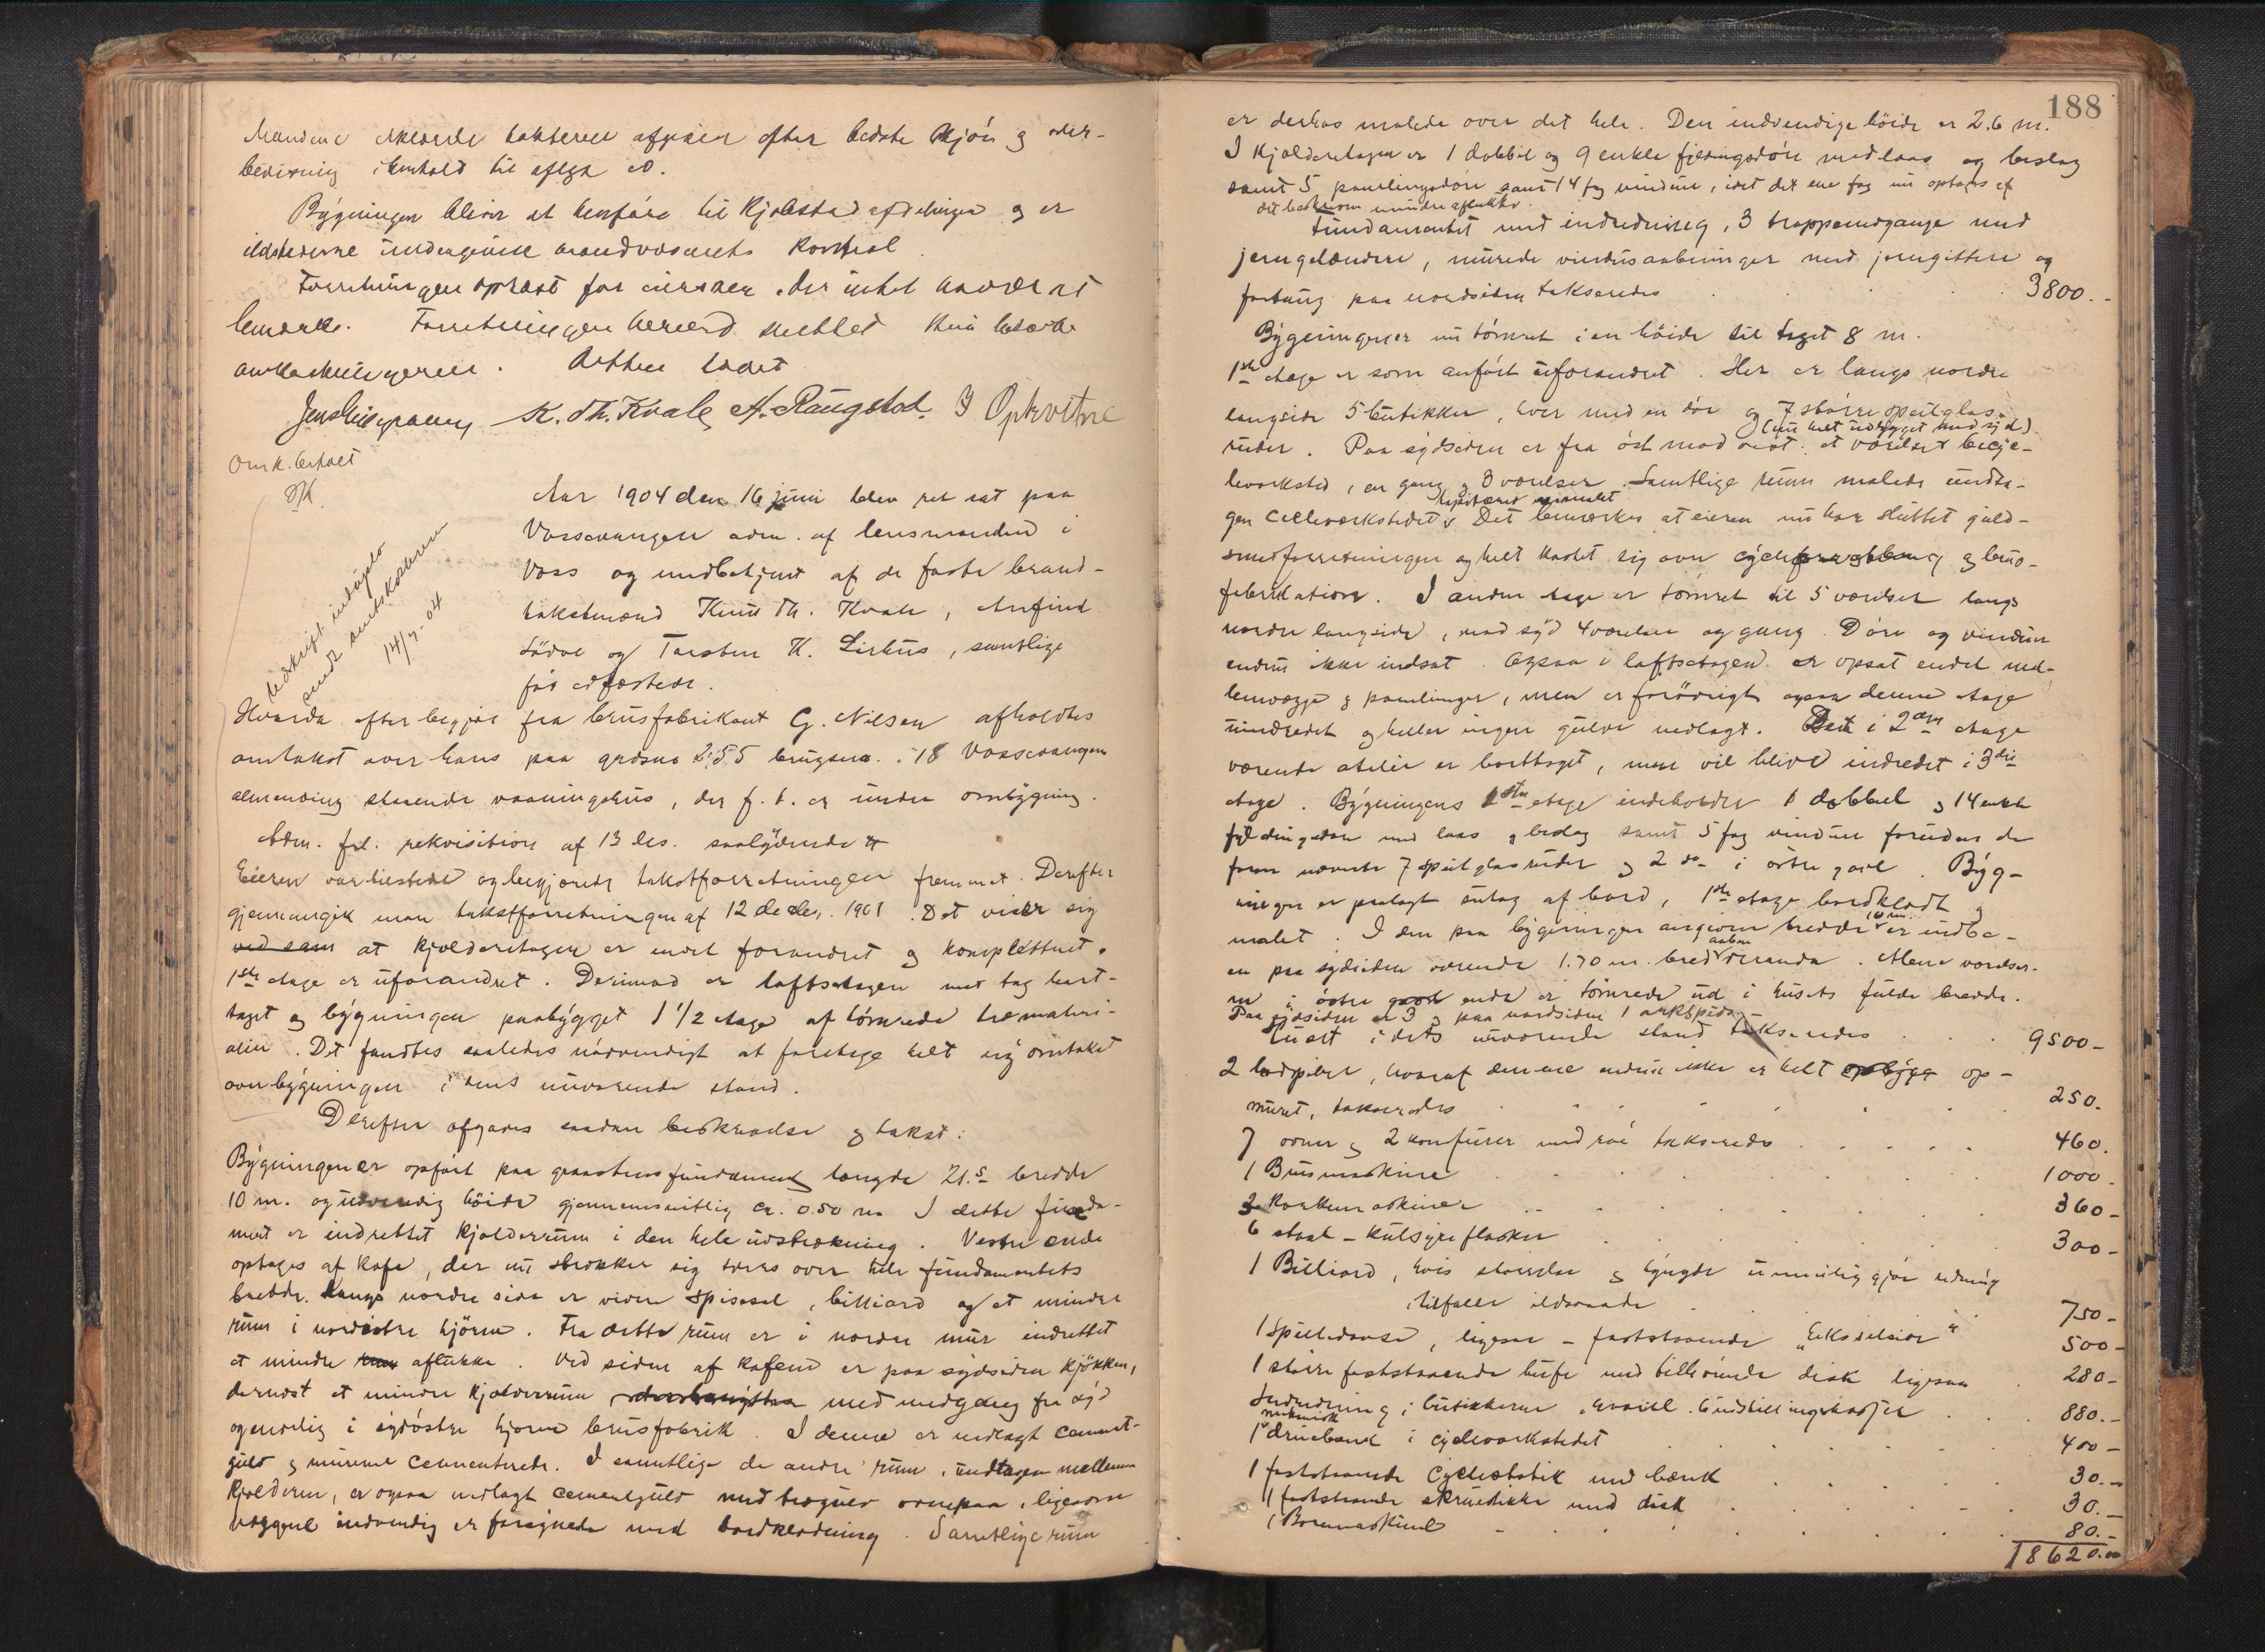 Mændene erklærede taksterne afgivne efter bedste skjön og over-
bevisning i henhold til aflagt ed.
Bygningen bliver at henföre til Kjöbstadafdelingen og er
ildstederne undergivne brandvæsenets kontrol.
Forretningen oplæst for eieren, der intet havde at
bemærke. Forretningen hermed sluttet
omkostningerne. Retten hævet
K. Th. Kvale A. Rangstad. I Opkvitne
Omk. betalt
Aar 1904 den 16 juni blev ret sat paa
Vossevangen adm. af lensmanden i
Voss og medbetjent af de faste brand-
takstmænd Knut Th. Kvale, Anfind
Lödve og Torsten K. Lirhus, samtlige
för edfæstede.
Udskrift indsagts
sendt amtskassereren
14/7-04
Hvorda efter begjær fra brusfabrikant G. Nilsen afholdtes
omtakst over hans paa gardsno 255 brugsno. 18 Vossevangen
almending staaende vaaningshus, der f. t. er under ombygning.
Adm. frl. rekvisition af 13 ds. saalydende
Eieren var tilstede og begjærede takstforretningen fremmet. Derefter
gjennemgik man takstforretningen af 12 decbr. 1901. Det viser sig
ved sam at kjelderetagen er endel forandret og komplettert.
1ste etage er uforandret. Derimod er loftsetagen med tag bort-
taget og bygningen paabygget 1 1/2 etage af tömrede træmateri-
alier. Det fandtes saaledes nödvendigt at foretage helt ny omtakst
over bygningen i dens nuværende stand.
Derefter afgaves saadan beskrivelse og takst:
Bygningen er opfört paa graastensfundament længde 21.5 bredde
10 m. og udvendig höide gjennemsnitlig ca. 0.50 m I dette funda-
ment er indrettet kjelderrum i den hele udstrækning. Vestre ende
optages af kafe, der nu strækker sig tvers over hele fundamentets
bredde. Langs nordre side er videre spisesal, billiard og et mindre
rum i nordöstre hjörne. Fra dette rum er i nordre mur indrettet
et mindre aflukke. Ved siden af kafeen er paa sydsiden kjökken,
dernæst et mindre kjelderrum med nedgang fra syd
og endelig i sydöstre hjörne brusfabrik. I denne er nedlagt cement-
gulv og murene cementerede. I samtlige de andre rum, undtagen mellem
kjelderen, er ogsaa nedlagt cementgulv med trægulv ovenpaa, ligesom
væggene indvendig er forsynede med bordklædning. Samtlige rum
188
er derhos malede over det hele. Den indvendige höide er 2.6 m.
I Kjelderetagen er 1 dobbel og 9 enkle fyldningsdöre med laas og beslag
samt 5 panelingsdöre samt 14 fag vinduer, idet det ene fag nu optages af
det beskrevne mindre aflukke.
Fundamentet med indredning, 3 trappenedgange med
jerngelændere, murede vindusaabninger med jerngittere og
fortaug paa nordsiden takseredes 3800.-
Bygningen er nu tömret i en höide til taget 8 m.
1ste etage er som anfört uforandret. Her er langs nordre
langside 5 butikker, hver med en dör og 7 större speilglas-
(nu helt udbygget mod syd)
ruder. Paa sydsiden er fra öst mod vest: et værelse, cycle-
leværksted, en gang og 3 værelser. Samtlige rum malede undta-
gen cycleværkstedet. Det bemærkes at eieren nu har sluttet guld-
smedforretningen og helt kastet sig over cycle og brus-
fabrikation. I anden etage er tömret til 5 værelser langs
nordre langside, mod syd 4 værelser og gang. Döre og vinduer
endnu ikke indsat. Ogsaa i loftsetagen er opsat endel mel-
lemvægge og panelinger, men er forövrigt ogsaa denne etage
uindredet og heller ingen gulve nedlagt. Det i 2den etage
værende atelier er borttaget, men vil blive indredet i 3die
etage. Bygningens 1ste etage indeholder 1 dobbel og 14 enkle
fyldingsdöre med laas og beslag samt 5 fag vinduer foruden de
foran nævnte 7 speilglasruder og 2 do i östre gavl. Byg-
ningen er paalagt sutag af bord, 1ste etage bordklædt og
malet. I den paa bygningen angivne bredde 10 m. er indbe-
en paa sydsiden værende 1.70 m. bred aaben veranda. Alene værelser-
ne i östre ende er tömrede ud i husets fulde bredde.
Paa sydsiden er 3 og paa nordsiden 1 ark
Huset i dets nuværende stand takseredes 9500-
2 lödpiber, hvoraf den ene endnu ikke er helt op-
muret, takseredes 250.
7 ovner og 2 komfurer med rör takseredes 460.
1 Brusmaskine 1000.
3 korkemaskiner 360-
6 staal-kulsyreflasker 300-
1 Billiard, hvis störrelse og tyngde umuliggjör redning
i tilfælde ildsvaade 750-
1 spilledaase, ligesaa - faststaaende "Ekscelsior" 500-
1 större faststaaende bufe med tilhörende disk ligesaa 280-
Indredning i butikkerne, hvoriblt. 6 udstillingskasser 880.-
1 mekanisk dreiebænk i cycleværkstedet 400-
1 faststaaende cyclestativ med bænk 30.-
1 faststaaende skruestikke med disk 30.-
1 Boremaskine 80.-
18620.00